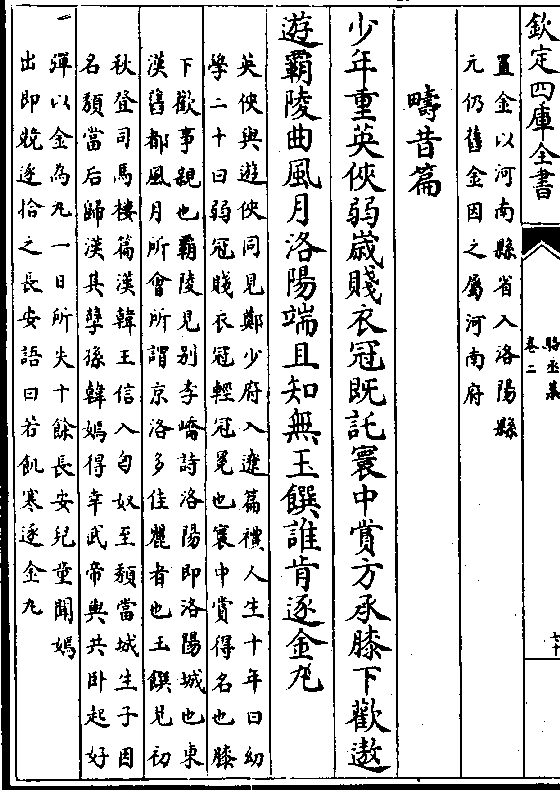 欽定四庫全書
駱丞集
卷二
七十
置金以河南縣省入洛陽縣
元仍舊金因之屬河南府
疇昔篇
少年重英俠弱歲賤衣冠既託寰中賞方承膝下歡遨
遊霸陵曲風月洛陽端且知無玉饌誰肯逐金丸
英俠與遊俠同見鄭少府入遼篇禮人生十年曰幼
學二十曰弱冠賤衣冠輕冠冕也寰中賞得名也膝
下歡事親也霸陵見别李嶠詩洛陽即洛陽城也東
漢舊都風月所會所謂京洛多佳麗者也玉饌見初
秋登司馬樓篇漢韓王信入匈奴至頹當城生子因
名頹當后歸漢其孽孫韓嫣得幸武帝與共卧起好
彈以金為丸一日所失十餘長安兒童聞嫣
出即競逐拾之長安語曰若飢寒逐金丸